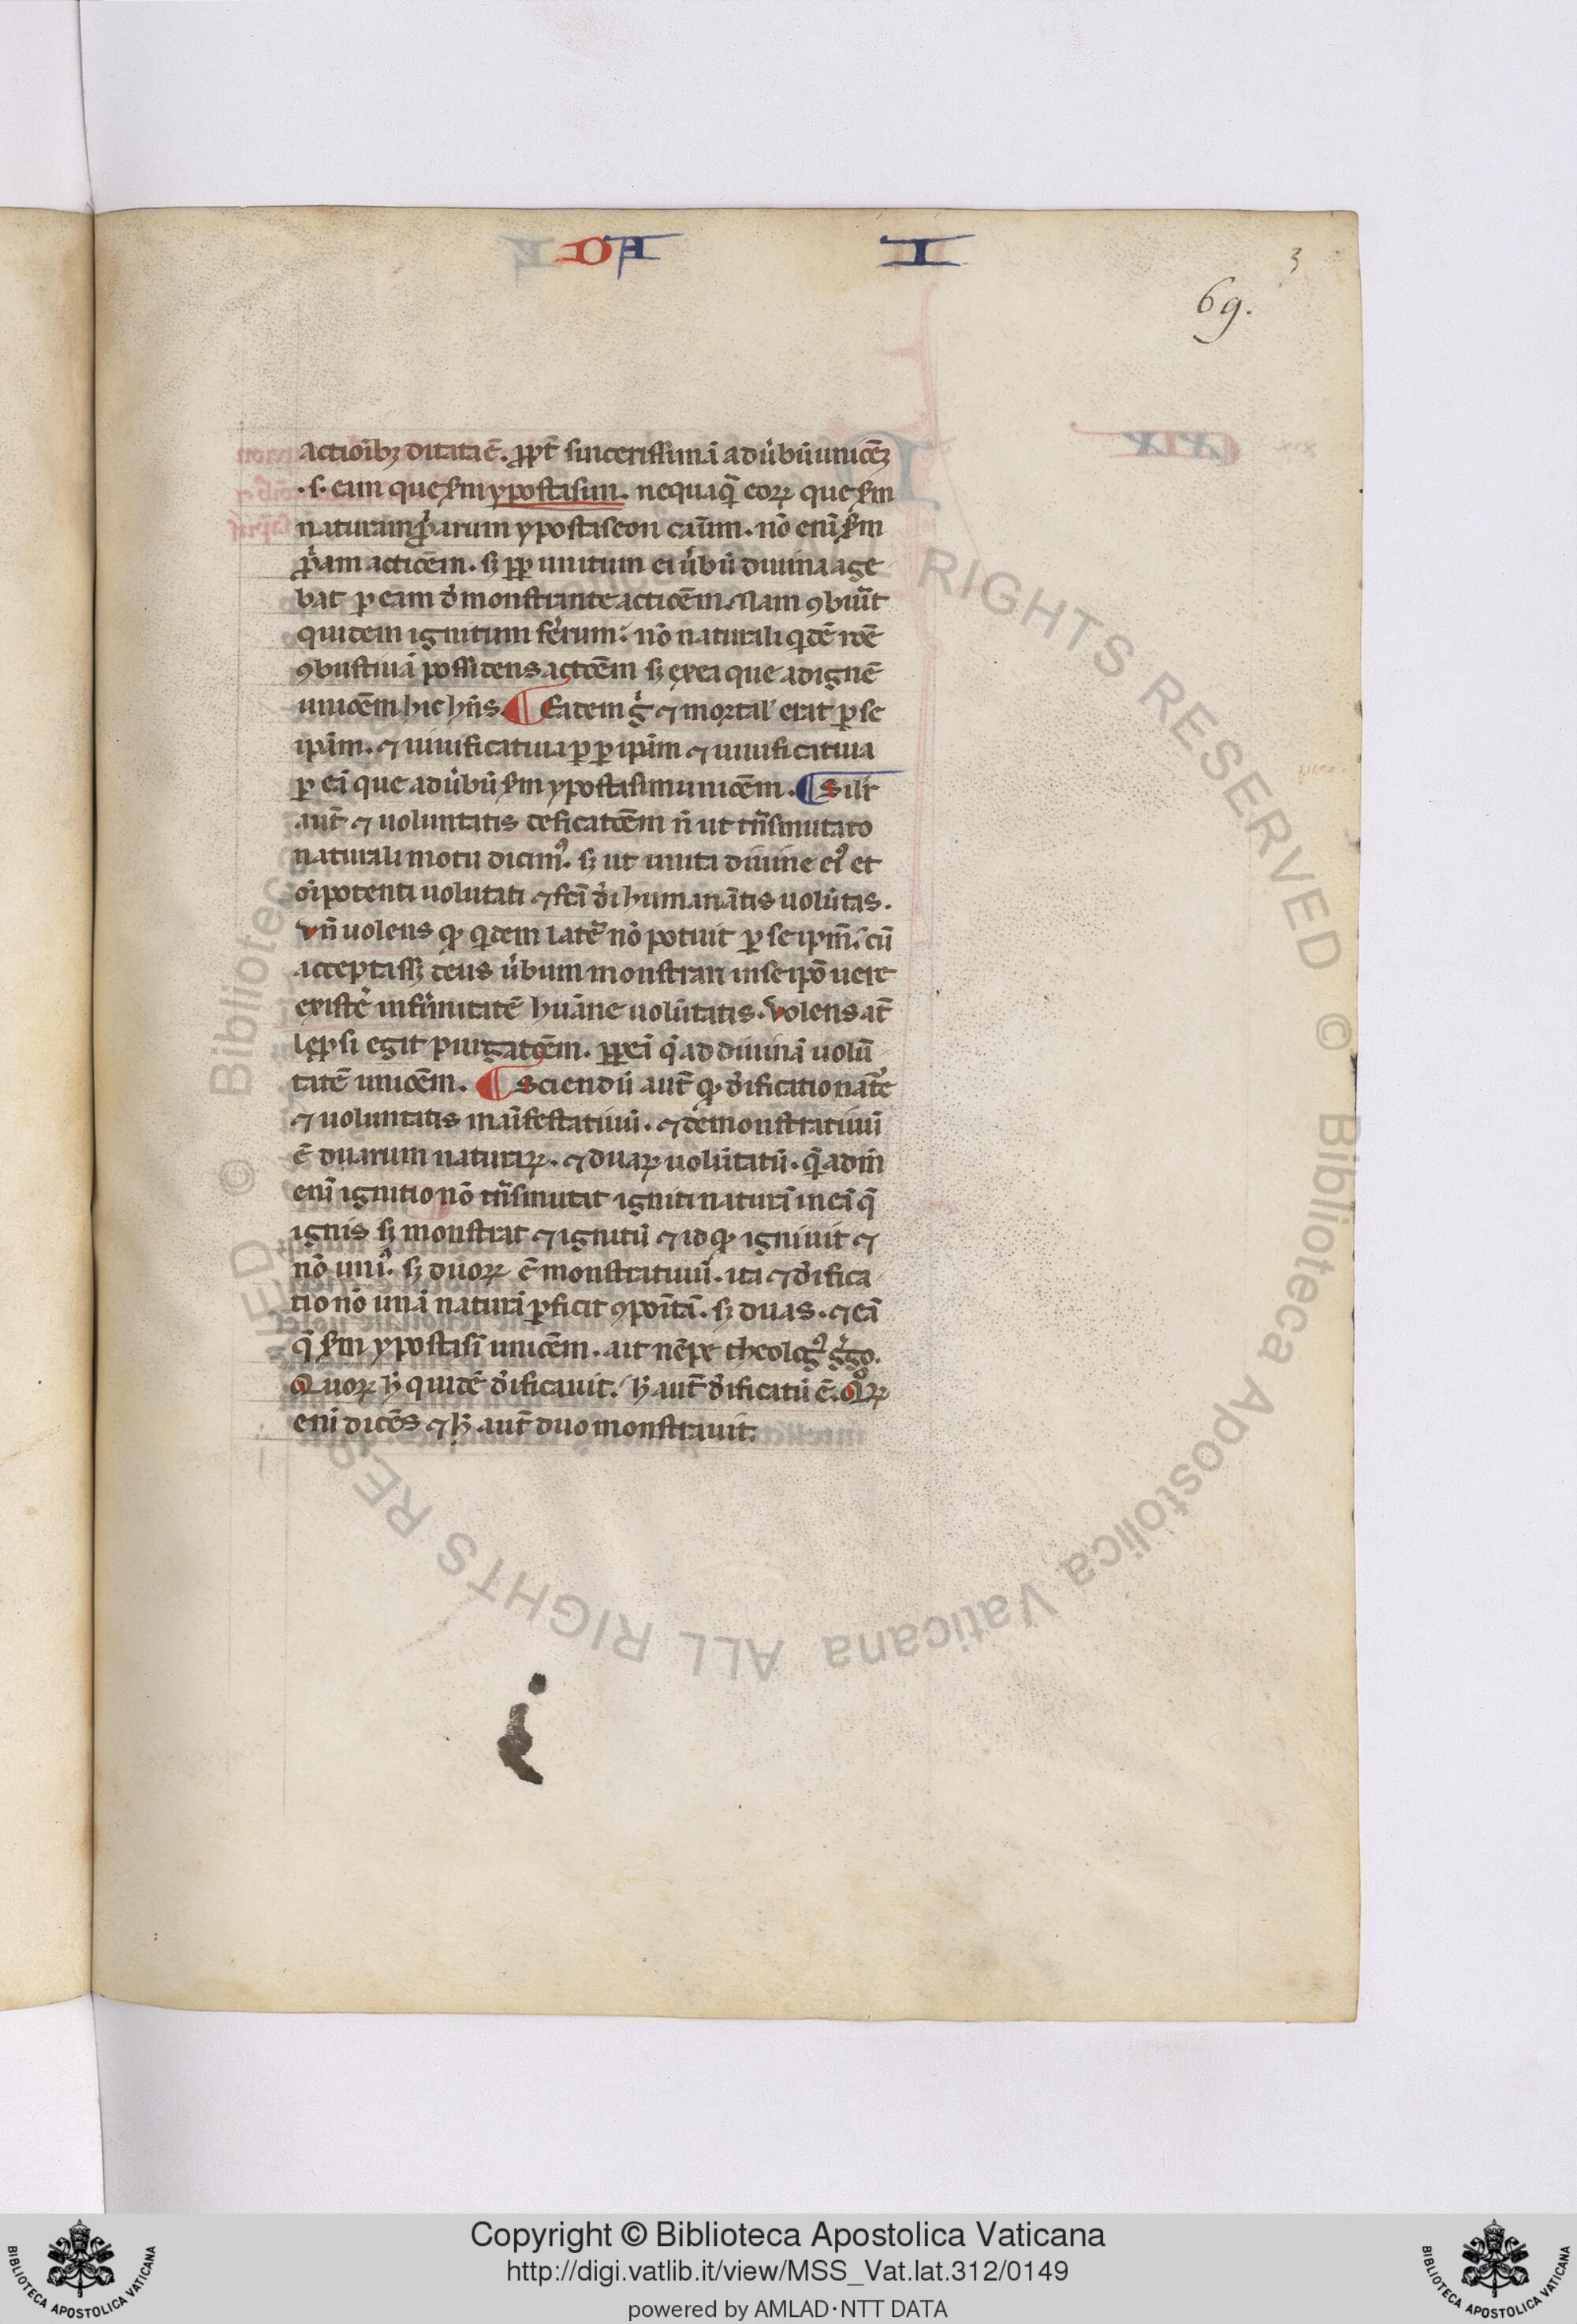 DA I
3
69.
actioībꝫ ditata ē. ꝓpt̄ sincerissimā ad u̇bū unicōeꝫ
.s. eam que ẜm ypostasim. nequaq̄ᵃ eoꝝ que ẜm
naturam ꝓp̄arum ypostaseon cāum. nō enī ẜm
ꝓp̄am acticōem. sꝫ ꝓp̄ unitum ei u̇bū diuina age
bat ꝑ eam d̄monstrante acticōem. Nam ꝯbuīt
quidem ignitum fe᷑rum. nō naturali q̇dē rōe
ꝯbustiuā possidens actōem sꝫ ex ea que ad ignē
unicōem hic hn̄s. ¶ Eadem g̊ ⁊ mortal' erat ꝑ se
ip̄am. ⁊ uiuificatiua ꝑ ꝑ ip̄am ⁊ uiuificatiua
ꝑ eā que ad u̇bū ẜm ypostasim unicōem. ¶ Silr̄
aut̄ ⁊ uoluntatis deficatōem n̄ ut tn̄smutato
naturali motu dicimꝰ. sꝫ ut unita diuine eiꝰ et
oīpotenti uolūtati ⁊ fc̄i di humanātis uolūtas.
vn̄ uolens ꝙ q̇dem latē nō potuit ꝑ se ip̄m. cū
acceptass; deus u̇bum monstrari in se ip̄o uere
existe᷑ infirmitatē huāne uolūtatis. volens at̄
lepsi egit purgatōem. ꝓp̄ eā q̄ ad diuinā uolū
tatē unicōem. ¶ Sciendū aut̄ ꝙ d̄ificatio nat᷑e
⁊ uoluntatis māifestatiuū. ⁊ demonstratiuū
ē duarum naturaꝝ. ⁊ duaꝝ uolūtatū. q̄ᵃadm̄
enī ignitio nō tn̄smutat igniti naturā in eā q̄
ignis sꝫ monstrat ⁊ ignitū ⁊ id ꝙ igniuit ⁊
nō uniꝰ. sꝫ duoꝝ ē monstratiuū. ita ⁊ d̄ifica
tio nō unā naturā ꝑficit ꝯpoītā. sꝫ duas. ⁊ eā
q̄ ẜm ypostasī unicōem. ait nēpe theologꝰ g̊go.
Quoꝝ h̄ quidē d̄ificauit. h̄ aut̄ d̄ificatū ē. Qᵒꝝ
enī dicēs ⁊ h̄ aut̄ duo monstrauit.
Copyright © Biblioteca Apostolica Vaticana
http://digi.vatlib.it/view/MSS_Vat.lat.312/0149
powered by AMLAD·NTT DATA